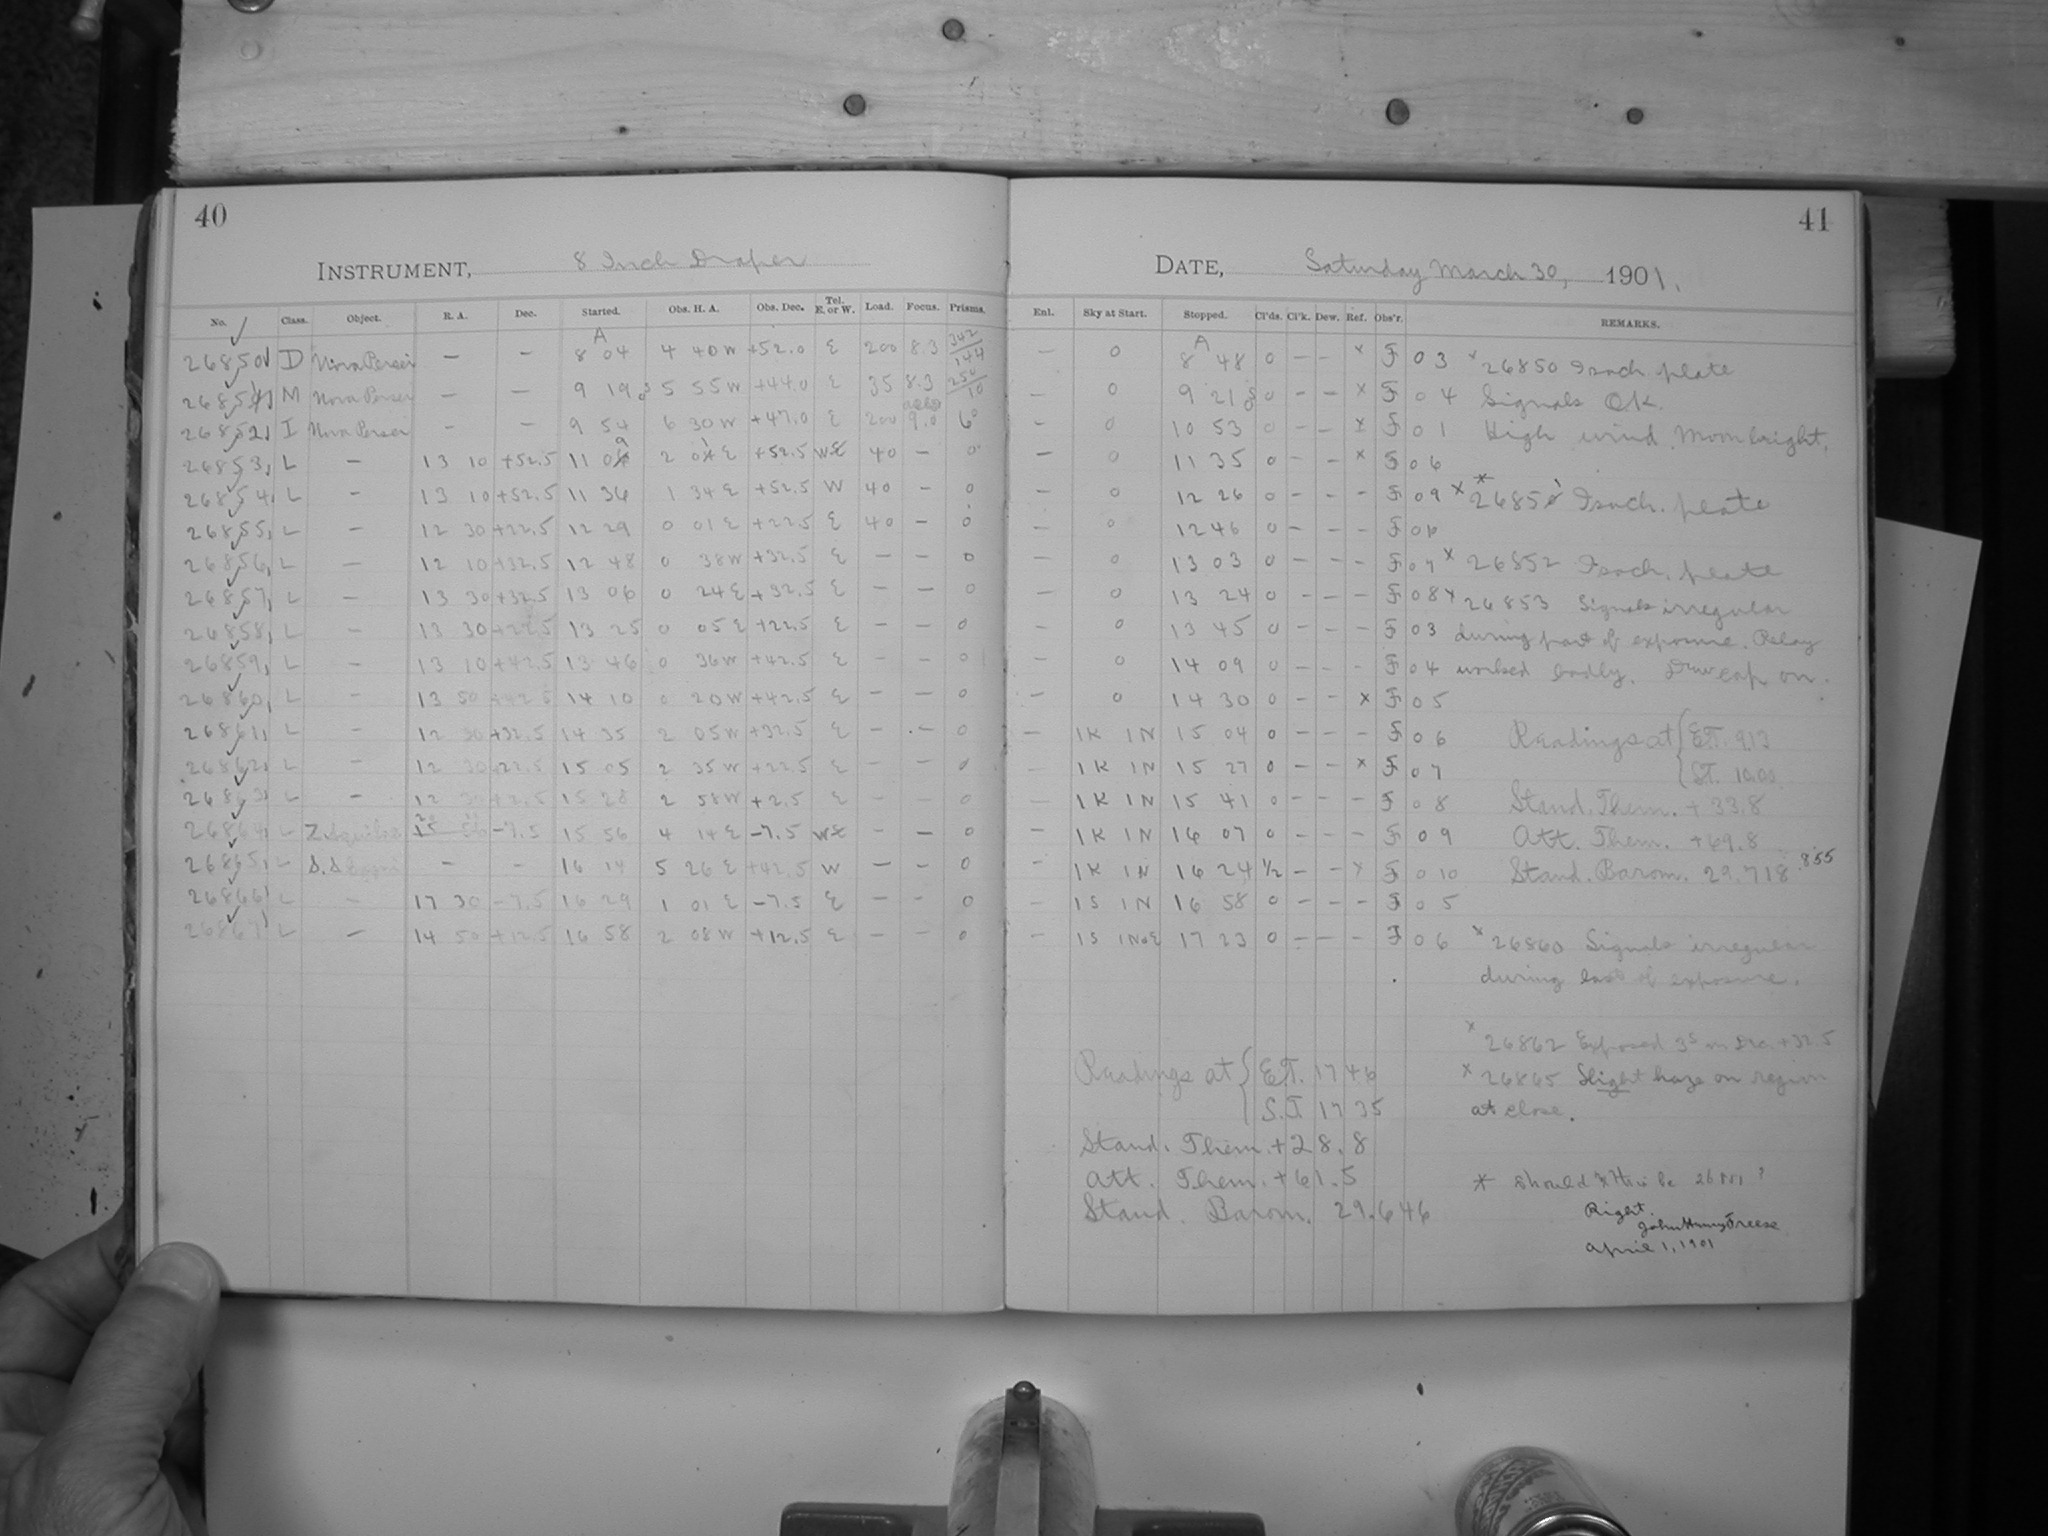 40
INSTRUMENT, 8 Inch Draper
No. Class. Object. R. A. Dec. Started. Obs. H. A. Obs. Dec. Tel. E. or W. Load. Focus. Prisms.
A
26850 D Nova Persei — — 8 04 4 40 W +52.0 E 200 8.3 342/144
26851 M Nova Persei — — 9 19 5 55 W +44.0 E 35 8.3 250/10
26852 I Nova Persei - - 9 54 6 30 W +47.0 E 200 9.0 6°
26853 L — 13 10 +52.5 11 09 2 01 E +52.5 W 40 — 0
26854 L — 13 10 +52.5 11 36 1 34 E +52.5 W 40 — 0
26855 L — 12 30 +22.5 12 29 0 01 E +22.5 E 40 — 0
26856 L — 12 10 +32.5 12 48 0 38 W +32.5 E — — 0
26857 L — 13 30 +32.5 13 06 0 24 E +32.5 E — — 0
26858 L — 13 30 +22.5 13 25 0 05 E +22.5 E — — 0
26859 L — 13 10 +42.5 13 46 0 36 W +42.5 E — — 0
26860 L — 13 50 +42.5 14 10 0 20 W +42.5 E — — 0
26861 L — 12 30 +32.5 14 35 2 05 W +32.5 E — — 0
26862 L — 12 30 +22.5 15 05 2 35 W +22.5 E — — 0
26863 L — 12 30 +2.5 15 28 2 58 W +2.5 E — — 0
26864 L Z. Aquilae -7.5 15 56 4 14 E -7.5 W — — 0
26865 L S.S. Cygni — — 16 14 5 26 E +42.5 W — — 0
26866 L — 17 30 -7.5 16 29 1 01 E -7.5 E — — 0
26867 L — 14 50 +12.5 16 58 2 08 W +12.5 E — — 0
41
DATE, Saturday March 30, 1901.
Enl. Sky at Start. Stopped. Cl'ds. Cl'k. Dew. Ref. Obs'r. REMARKS.
A
— 0 8 48 0 — — x F 03 x 26850 Isoch. plate
— 0 9 21 0 — — x F 04 Signals OK.
— 0 10 53 0 — — x F 01 High wind. Moon bright.
— 0 11 35 0 — — x F 06
— 0 12 26 0 — — — F 09 x * 26851 Isoch. plate
— 0 12 46 0 — — — F 06
— 0 13 03 0 — — — F 07 x 26852 Isoch. plate
— 0 13 24 0 — — — F 08 x 26853 Signals irregular
— 0 13 45 0 — — — F 03 during part of exposure. Relay
— 0 14 09 0 — — — F 04 worked badly. Dew cap on.
— 0 14 30 0 — — x F 05
— 1K 1N 15 04 0 — — — F 06 Readings at { E.T. 913
— 1K 1N 15 27 0 — — x F 07 S.T.
— 1K 1N 15 41 0 — — — F 08 Stand. Them. +33.8
— 1K 1N 16 07 0 — — — F 09 Att. Them. +69.8
— 1K 1N 16 24 ½ — — x F 010 Stand. Barom. 29.718 .855
— 1S 1N 16 58 0 — — — F 05
— 1S 1NoE 17 23 0 — — — F 06 x 26860 Signals irregular
during last of exposure.
x 26862 Exposed 3s in Dec. +32.5
Readings at { E.T. 17 46
S.T. 17 35
x 26865 Slight haze on region
at close.
Stand. Them. +28.8
Att. Them. +61.5
Stand. Barom. 29.646
* Should this be 26851?
Right.
John Henry Freese
April 1, 1901